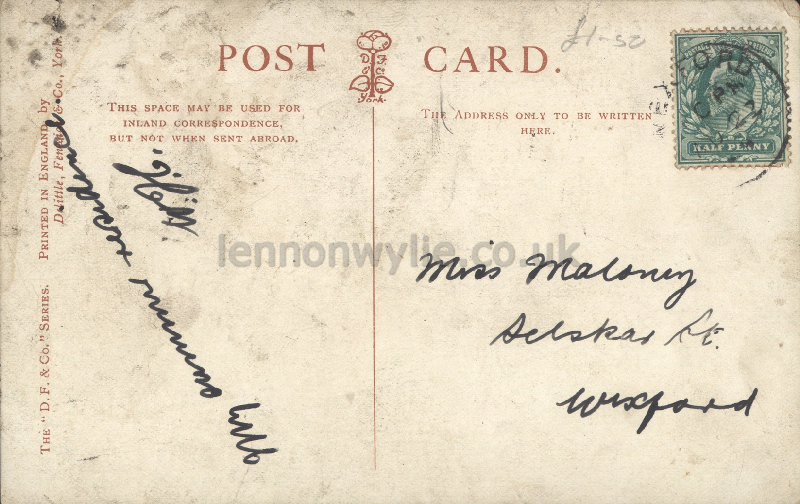 £1-50
POST CARD.
D F
& Co
York.
THIS SPACE MAY BE USED FOR
INLAND CORRESPONDENCE,
BUT NOT WHEN SENT ABROAD.
THE ADDRESS ONLY TO BE WRITTEN
HERE.
HALF PENNY
PRINTED IN ENGLAND by
Delittle, Fenwick & Co., York.
THE "D. F. & Co." SERIES.
lennonwylie.co.uk
Miss Maloney
Selskar St.
Wexford